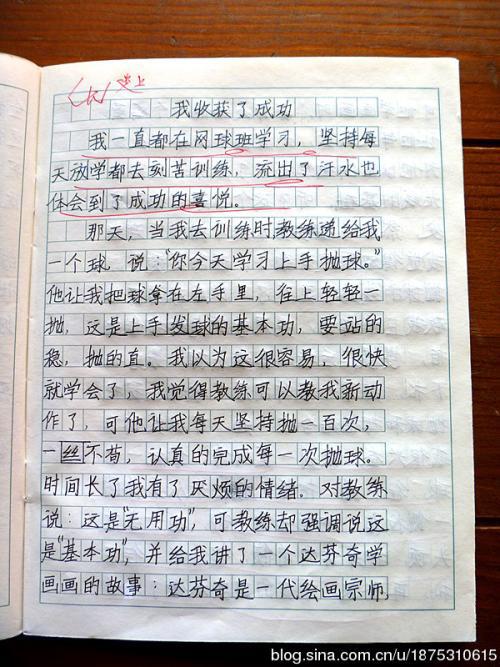 送上
我收获了成功
我一直都在网球班学习，坚持每
天放学都去刻苦训练，流出了汗水也
体会到了成功的喜悦。
那天，当我去训练时教练递给我
一个球，说：“你今天学习上手抛球。”
他让我把球拿在左手里，往上轻轻一
抛，这是上手发球的基本功，要站的
稳，抛的直。我以为这很容易，很快
就学会了，我觉得教练可以教我新动
作了，可他让我每天坚持抛一百次，
一丝不苟，认真的完成每一次抛球。
时间长了我有了厌烦的情绪，对教练
说：这是“无用功”，可教练却强调说这
是“基本功”，并给我讲了一个达芬奇学
画画的故事：达芬奇是一代绘画宗师，
blog.sina.com.cn/u/1875310615